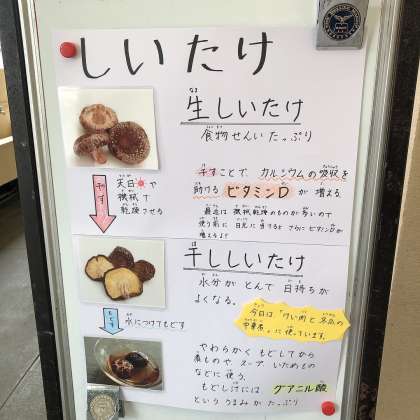 しいたけ
生しいたけ
食物せんい たっぷり
天日や
機械で
乾燥させる
干すことで、カルシウムの吸収を
助ける ビタミンD が 増える
最近は 機械乾燥のものが多いので
使う前に 日光に当てると さらにビタミンDが
増えるよ!
干ししいたけ
水分が とんで 日持ちが
よくなる。
水につけてもどす
今日は、「けい肉と冬瓜の
中華煮」に使っています。
やわらかく もどしてから
煮ものや スープ いためもの
などに使う。
もどし汁には グアニル酸
という うまみが たっぷり